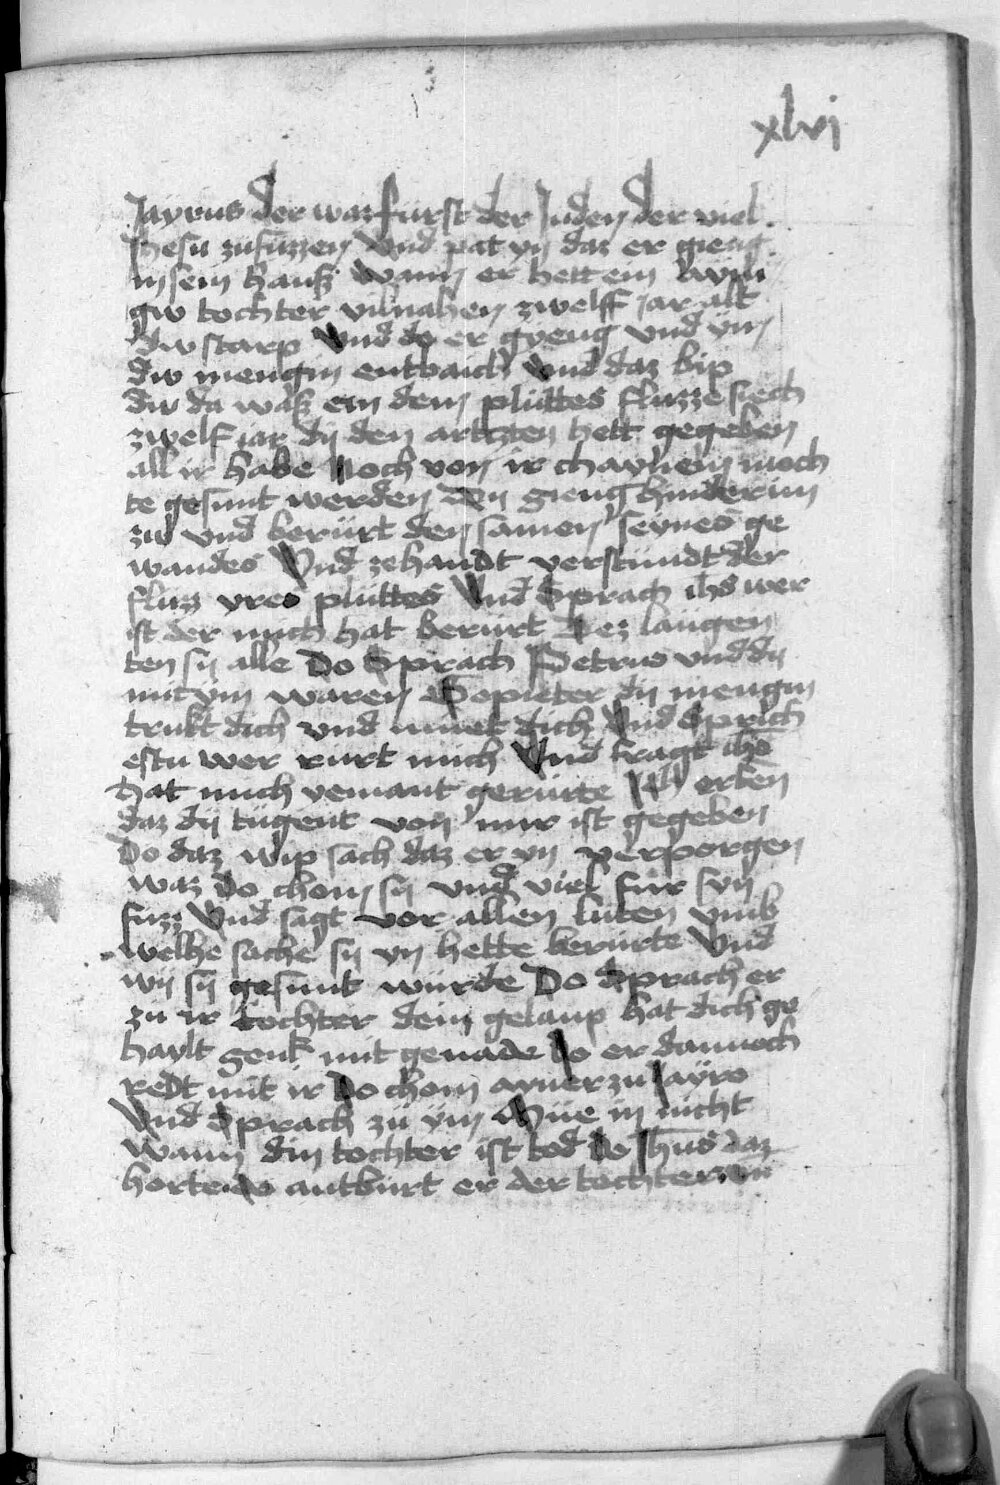 xlvi
Jayrus der waz fürst der Juden der viel
Jhesu zufüzzen Vnd pat yn daz er gieng
in sein hauß wann er hett ein ayni
giv tochter vilnahen zwelff jar alt
div starp Vnd do er gyeng vnd yn
div mengin entvaich Vnd daz bip
div da waß ein dem plüttes fluzze siech
zwelf jar dy den artzten hett gegeben
all ir habe Noch von ir chayhem moch
te gesunt werden Dy gieng hinder im
zu vnd berürt den samen seynes ge
wandes Vnd zehandt verstündt der
fluzz yres plüttes Vnd Sprach ihs wer
ist der mich hat berürt Dez laügen
ten sy alle Do Sprach Petrus vnd dy
mit ym waren Gepieter dy mengin
trukt dich vnd müet dich Vnd Sprich
estu wer rürt mich Vnd fragt ihs
hat mich yemant gerürte Ich erken
daz dy tügent von mir ist gegeben
Do daz wip sach daz er yn verporgen
waz Do chom sy vnd viel für syn
fuzz Vnd sagt vor allen luten vmb
welhe sache sy yn hette berürte Vnd
wy sy gesunt würde Do Sprach er
zu ir tochter dein gelaup hat dich ge
haylt genk mit genade Do er dannoch
redt mit ir Do chom ayner zu Jayro
Vnd Sprach zü ym Müe in nicht
wann din tochter ist tod Do Jhus daz
horte do antbürt er der tochter